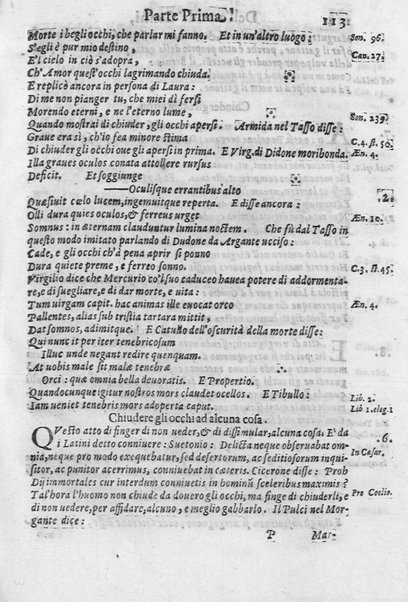 Parte Prima. 113
Morte i begli occhi, che parlar mi fanno. Et in un'altro luogo; Son. 96.
S'egli è pur mio destino, Can. 27.
E'l cielo in ciò s'adopra,
Ch'Amor quest'occhi lagrimando chiuda.
E replicò ancora in persona di Laura:
Di me non pianger tu, che miei dì fersi
Morendo eterni, e ne l'eterno lume,
Quando mostrai di chiuder, gli occhi apersi. Armida nel Tasso disse: Son. 239.
Graue era sì, ch'io fea minore stima C. 4. st. 50.
Di chiuder gli occhi oue gli apersi in prima. E Virg. di Didone moribonda. Æn. 4.
Illa graues oculos conata attollere rursus
Deficit. Et soggiunge
Oculisque errantibus alto .2.
Quæsiuit cœlo lucem, ingemuitque reperta. E disse ancora:
Olli dura quies oculos, & ferreus urget Æn. 10.
Somnus: in æternam clauduntur lumina noctem. Che fù dal Tasso in
questo modo imitato parlando di Dudone da Argante ucciso:
Cade, e gli occhi ch'à pena aprir si ponno
Dura quiete preme, e ferreo sonno. C. 3. st. 45.
Virgilio dice che Mercurio co'l suo caduceo hauea potere di addormenta-
re, e di suegliare, e di dar morte, e uita:
Tum uirgam capit. hac animas ille euocat orco Æn. 4.
Pallentes, alias sub tristia tartara mittit,
Dat somnos, adimitque. E Catullo dell'oscurità della morte disse:
Qui nunc it per iter tenebricosum
Illuc unde negant redire quenquam.
At uobis male sit malæ tenebræ
Orci: quæ omnia bella deuoratis. E Propertio.
Quandocunque igitur nostros mors claudet ocellos. E Tibullo: Lib. 2.
Iam ueniet tenebris mors adoperta caput. Lib. 1. eleg. 1
Chiudere gli occhi ad alcuna cosa.
QVesto atto di finger di non ueder, & di dissimular, alcuna cosa. E' da .6.
i Latini detto conniuere: Suetonio: Delicta neque obseruabat om-
nia, neque pro modo exequebatur, sed desertorum, ac seditiosorum inqui- In Cæsar.
sitor, ac punitor acerrimus, conniuebat in cæteris. Cicerone disse: Proh
Dij immortales cur interdum conniuetis in hominū sceleribus maximis? Pro Coelio.
Tal'hora l'huomo non chiude da douero gli occhi, ma finge di chiuderli, e
di non uedere, per affidare, alcuno, e meglio gabbarlo. Il Pulci nel Mor-
gante dice:
P Mar-